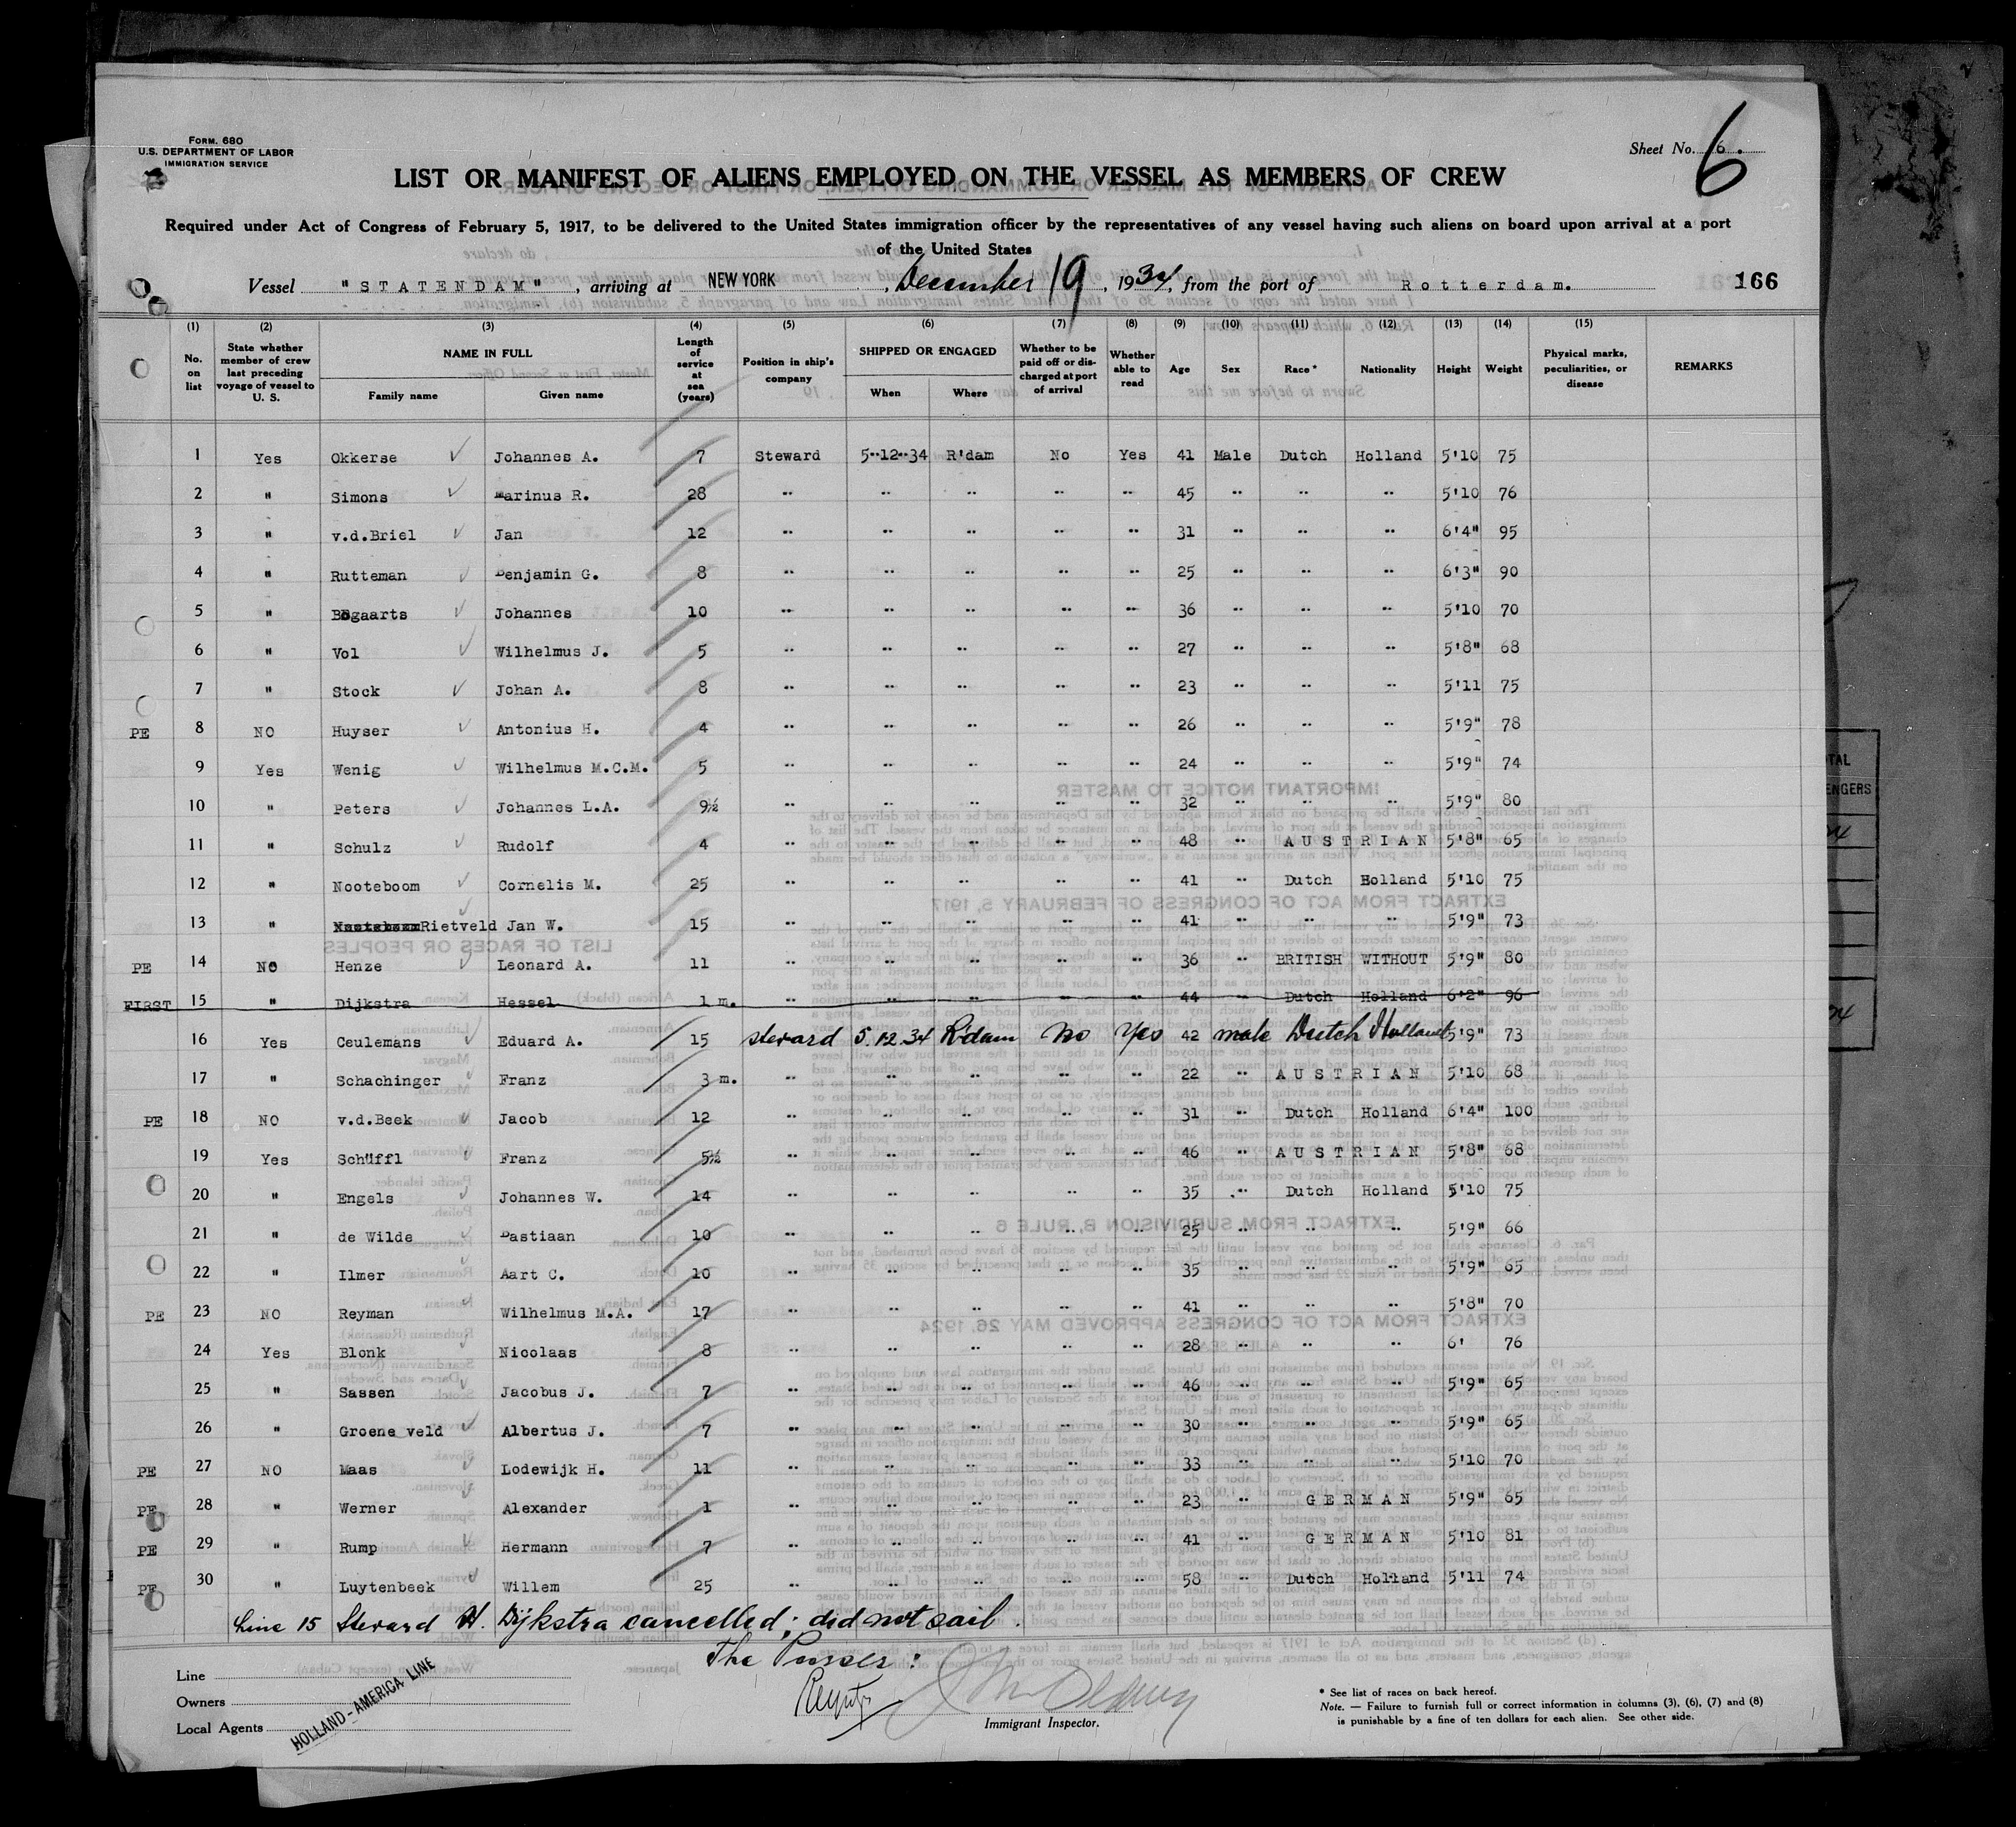 FORM. 680
U.S. DEPARTMENT OF LABOR
IMMIGRATION SERVICE
Sheet No. 6.
6
LIST OR MANIFEST OF ALIENS EMPLOYED ON THE VESSEL AS MEMBERS OF CREW
Required under Act of Congress of February 5, 1917, to be delivered to the United States immigration officer by the representatives of any vessel having such aliens on board upon arrival at a port
of the United States
Vessel "STATENDAM", arriving at NEW YORK, December 19, 1934, from the port of Rotterdam. 166
(1) (2) (3) (4) (5) (6) (7) (8) (9) (10) (11) (12) (13) (14) (15)
No. on list State whether member of crew last preceding voyage of vessel to U. S. NAME IN FULL Family name Given name Length of service at sea (years) Position in ship's company SHIPPED OR ENGAGED When Where Whether to be paid off or discharged at port of arrival Whether able to read Age Sex Race * Nationality Height Weight Physical marks, peculiarities, or disease REMARKS
1 Yes Okkerse Johannes A. 7 Steward 5-12-34 R'dam No Yes 41 Male Dutch Holland 5'10 75
2 " Simons Marinus R. 28 " " " " " 45 " " " 5'10 76
3 " v.d.Briel Jan 12 " " " " " 31 " " " 6'4" 95
4 " Rutteman Benjamin G. 8 " " " " " 25 " " " 6'3" 90
5 " Bogaarts Johannes 10 " " " " " 36 " " " 5'10 70
6 " Vol Wilhelmus J. 5 " " " " " 27 " " " 5'8" 68
7 " Stock Johan A. 8 " " " " " 23 " " " 5'11 75
PE 8 NO Huyser Antonius H. 4 " " " " " 26 " " " 5'9" 78
9 Yes Wenig Wilhelmus M.C.M. 5 " " " " " 24 " " " 5'9" 74
10 " Peters Johannes L.A. 9½ " " " " " 32 " " " 5'9" 80
11 " Schulz Rudolf 4 " " " " " 48 " AUSTRIAN 5'8" 65
12 " Nooteboom Cornelis M. 25 " " " " " 41 " Dutch Holland 5'10 75
13 " Nooteboom Rietveld Jan W. 15 " " " " " 41 " " " 5'9" 73
PE 14 NO Henze Leonard A. 11 " " " " " 36 " BRITISH WITHOUT 5'9" 80
FIRST 15 " Dijkstra Hessel 1 m. " " " " " 44 " Dutch Holland 6'2" 96
16 Yes Ceulemans Eduard A. 15 steward 5.12.34 R'dam No Yes 42 male Dutch Holland 5'9" 73
17 " Schachinger Franz 3 m. " " " " " 22 " AUSTRIAN 5'10 68
PE 18 NO v.d.Beek Jacob 12 " " " " " 31 " Dutch Holland 6'4" 100
19 Yes Schüffl Franz 5½ " " " " " 46 " AUSTRIAN 5'8" 68
20 " Engels Johannes W. 14 " " " " " 35 " Dutch Holland 5'10 75
21 " de Wilde Bastiaan 10 " " " " " 25 " " " 5'9" 66
22 " Ilmer Aart C. 10 " " " " " 35 " " " 5'9" 65
PE 23 NO Reyman Wilhelmus M.A. 17 " " " " " 41 " " " 5'8" 70
24 Yes Blonk Nicolaas 8 " " " " " 28 " " " 6' 76
25 " Sassen Jacobus J. 7 " " " " " 46 " " " 5'9" 65
26 " Groene veld Albertus J. 7 " " " " " 30 " " " 5'9" 65
PE 27 NO Maas Lodewijk H. 11 " " " " " 33 " " " 5'10 70
PE 28 " Werner Alexander 1 " " " " " 23 " GERMAN 5'9" 65
PE 29 " Rump Hermann 7 " " " " " 41 " GERMAN 5'10 81
PE 30 " Luytenbeek Willem 25 " " " " " 58 " Dutch Holland 5'11 74
Line 15 Steward H. Dijkstra cancelled; did not sail.
The Purser:
Line
Owners
Local Agents
HOLLAND-AMERICA LINE
Immigrant Inspector.
* See list of races on back hereof.
Note. — Failure to furnish full or correct information in columns (3), (6), (7) and (8)
is punishable by a fine of ten dollars for each alien. See other side.